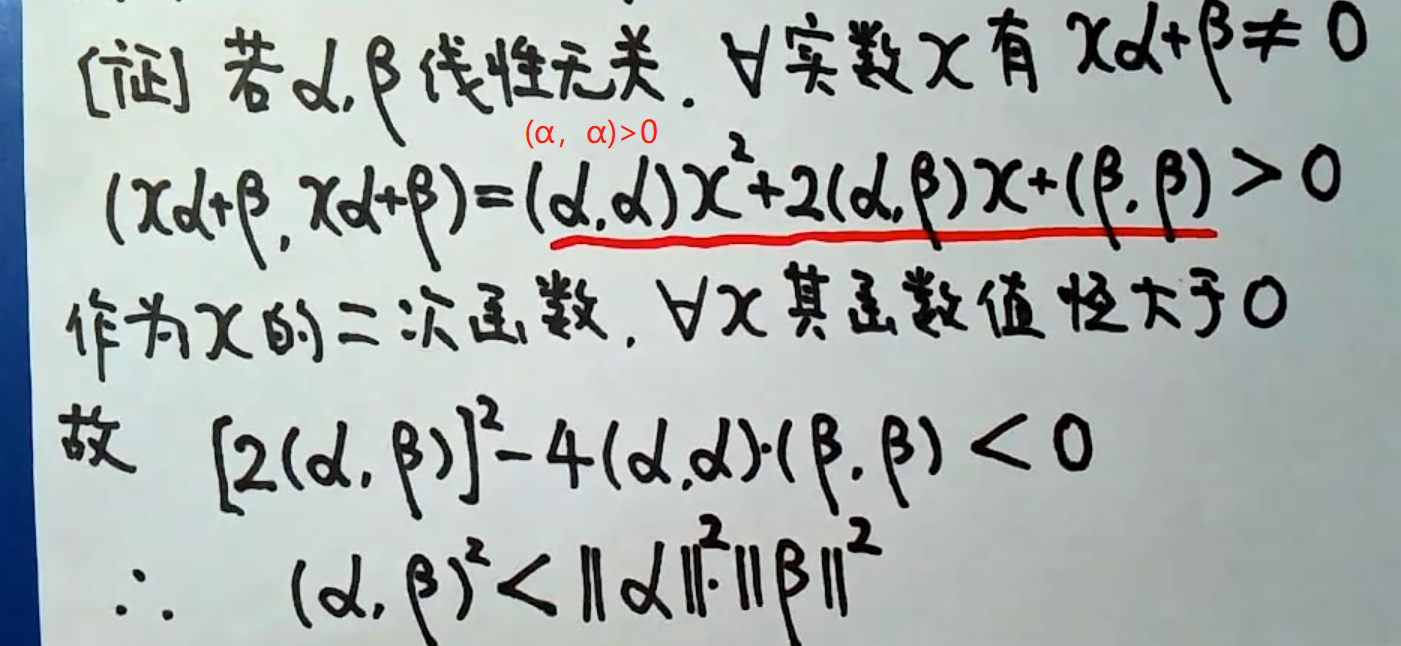 [证] 若 α, β 线性无关. ∀实数 x 有 xα+β≠0
(α, α)>0
(xα+β, xα+β)=(α,α)x²+2(α,β)x+(β,β)>0
作为 x 的二次函数, ∀x 其函数值恒大于0
故 [2(α,β)]²-4(α,α)·(β,β)<0
∴ (α,β)²<‖α‖²·‖β‖²